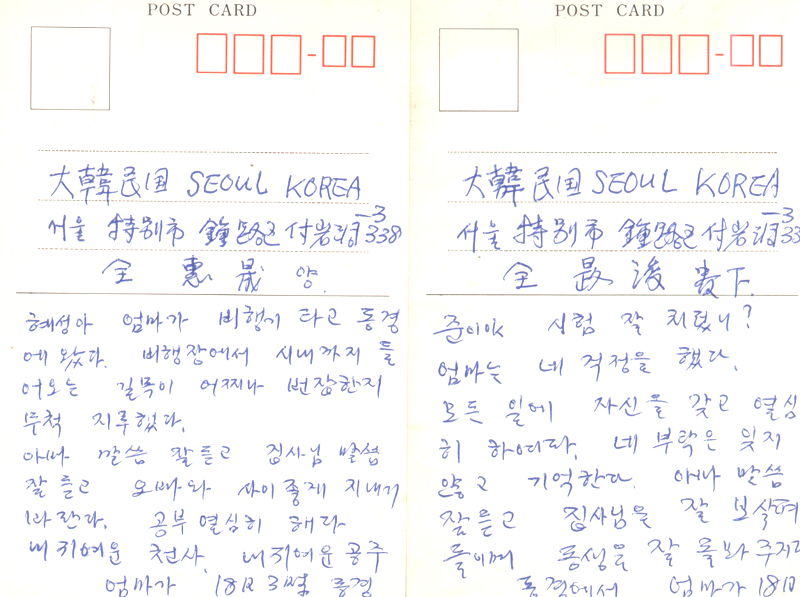 POST CARD
大韓民国 SEOUL KOREA
서울 特別市 鐘路区 付岩洞 338-3
全 惠 晟 양.
혜성아 엄마가 비행기 타고 동경
에 왔다. 비행장에서 시내까지 들
어오는 길목이 어찌나 번잡한지
무척 지루했다.
아빠 말씀 잘듣고 집사님 말씀
잘 듣고 오빠와 사이좋게 지내기
바란다. 공부 열심히 해다
내 귀여운 천사, 내 귀여운 공주
엄마가 18日 3時 동경
POST CARD
大韓民国 SEOUL KOREA
서울 特別市 鐘路区 付岩洞 33
全 晸 浚 貴下.
준이야 시험 잘 치렀니?
엄마는 네 걱정을 했다.
모든 일에 자신을 갖고 열심
히 하여라. 네 부탁은 잊지
않고 기억한다. 아빠 말씀
잘 듣고 집사님을 잘 보살펴
들이며 동생을 잘 돌봐주기
동경에서 엄마가 18日